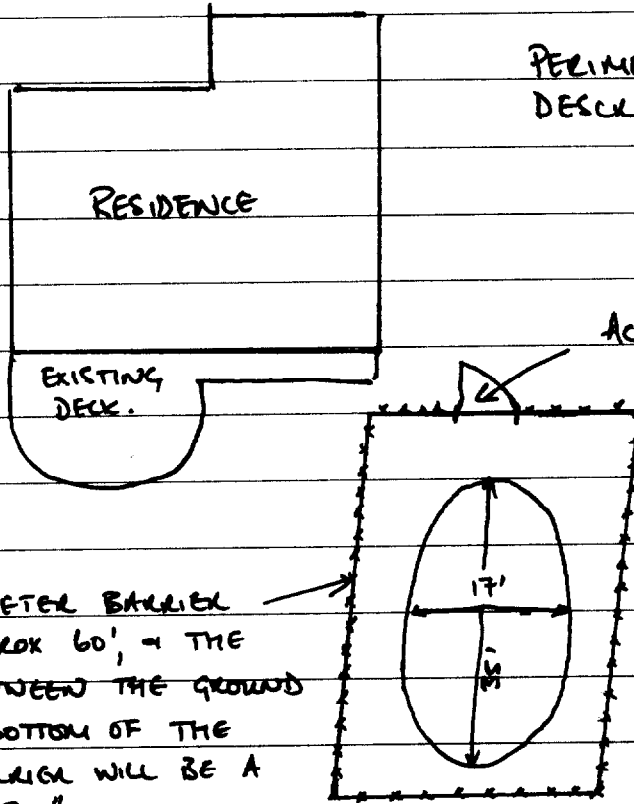 PERIM
DESCR
RESIDENCE
AC
EXISTING
DECK.
17'
35'
ETER BARRIER
ROX 60', & THE
WEEN THE GROUND
BOTTOM OF THE
RRIER WILL BE A